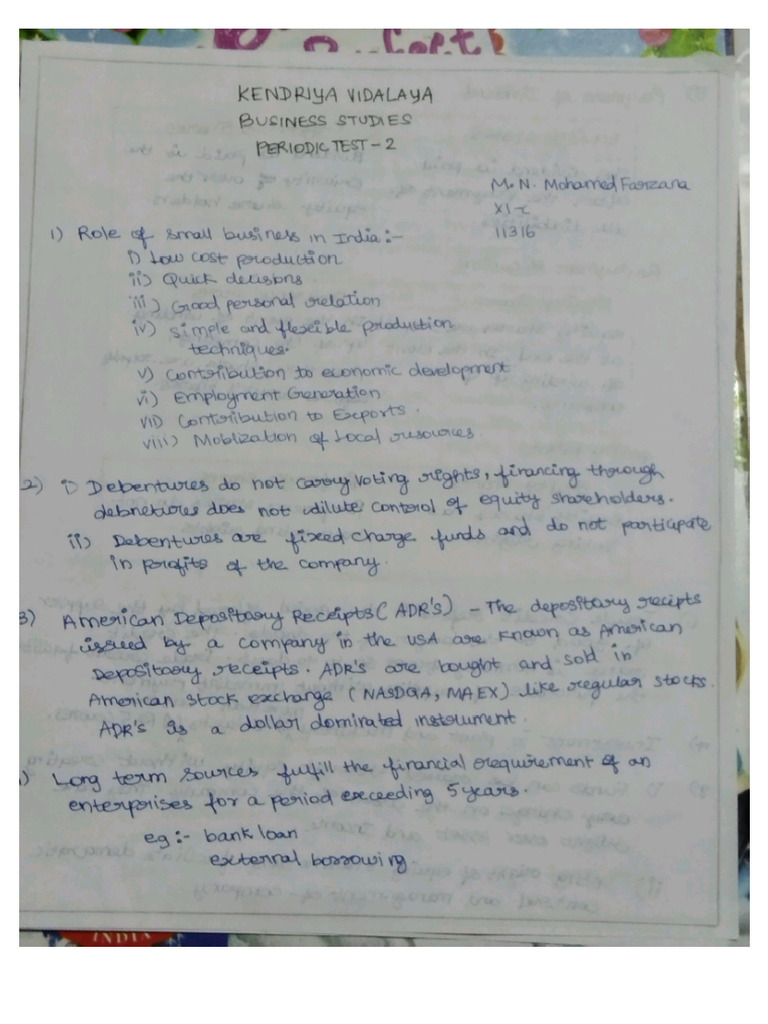 KENDRIYA VIDALAYA
BUSINESS STUDIES
PERIODIC TEST-2
M.N. Mohamed Farzana
XI-C
11316
1) Role of small business in India:-
i) Low cost production
ii) Quick decisions
iii) Good personal relation
iv) Simple and flexible production
techniques.
v) Contribution to economic development
vi) Employment Generation
vii) Contribution to Exports.
viii) Moblization of Local resources.
2) i) Debentures do not carry voting rights, financing through
debnetires does not dilute control of equity shareholders.
ii) Debentures are fixed charge funds and do not particiate
in profits of the company.
3) American Depositary Receipts (ADR's) - The depositary recipts
issued by a company in the USA are known as American
Depository receipts. ADR's are bought and sold in
American stock exchange (NASDQA, MAEX) like regular stocks.
ADR's is a dollar dominated instrument.
) Long term sources fulfill the financial requirement of an
enterprises for a period exceeding 5 years.
eg:- bank loan
external borrowing.
INDIA